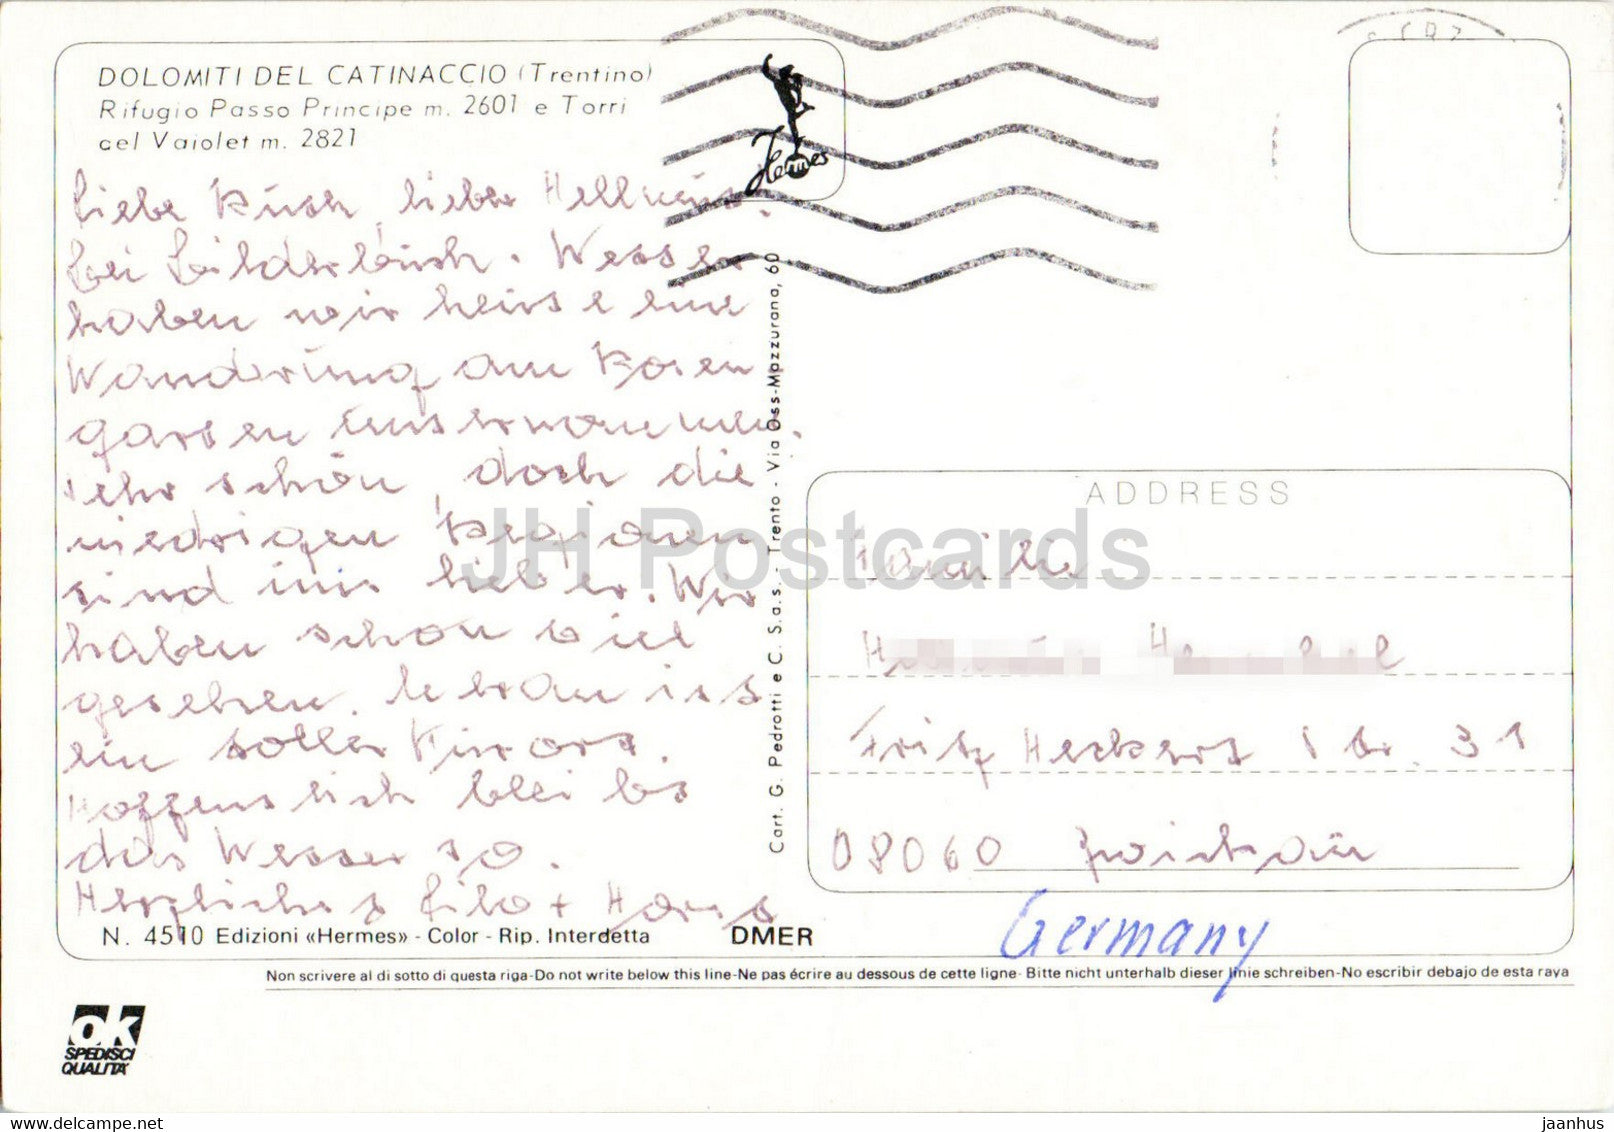 DOLOMITI DEL CATINACCIO (Trentino)
Rifugio Passo Principe m. 2601 e Torri
cel Vaiolet m. 2821
Hermes
Liebe Ruth, lieber Hellmut.
bei Bilderbuch. Wetter
haben wir heute eine
Wanderung am Rosen
garten unternommen.
Sehr schön, doch die
niedrigen Regionen
sind mir lieber. Wir
haben schon viel
gesehen. Meran ist
ein toller Kurort.
Hoffentlich bleibt
das Wetter so.
Herzlichst Lilo + Horst
Cart. G. Pedrotti e C. S.a.s. - Trento - Via Oss-Mazzurana, 60
ADDRESS
Familie
Fritz Heckert Str. 31
08060 Zwickau
Germany
N. 4510 Edizioni «Hermes» - Color - Rip. Interdetta DMER
Non scrivere al di sotto di questa riga-Do not write below this line-Ne pas écrire au dessous de cette ligne-Bitte nicht unterhalb dieser linie schreiben-No escribir debajo de esta raya
ok
SPEDISCI
QUALITÀ
JH Postcards
www.delcampe.net
jaanhus